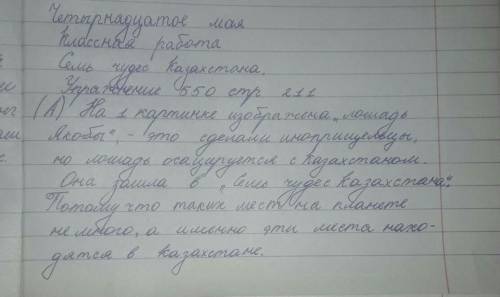 Четырнадцатое мая
Классная работа
Семь чудес Казахстана.
Упражнение 550 стр 211
(А) На 1 картинке изображена „лошадь
Якобы“, - это сделали инопришельцы,
но лошадь осацируется с Казахстаном.
Она зашла в „Семь чудес Казахстана“.
Потому что таких мест на планете
не много, а именно эти места нахо-
дятся в Казахстане.